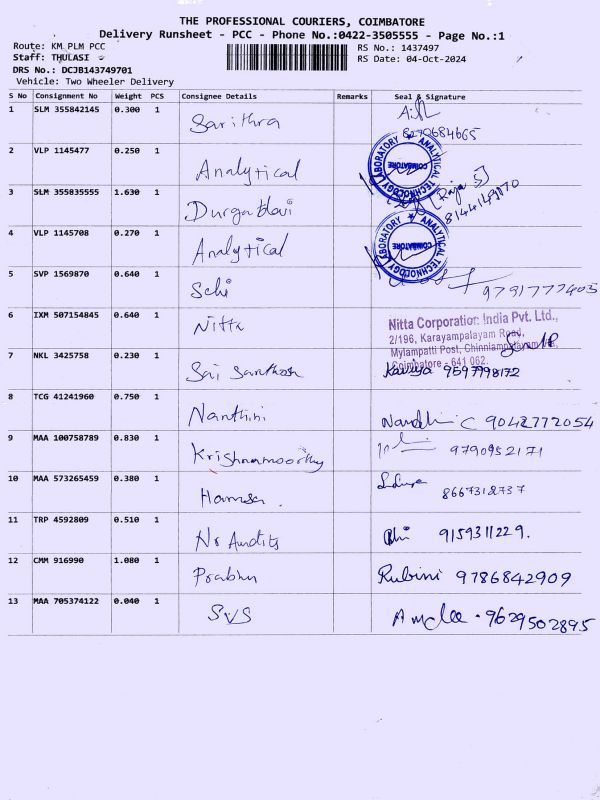 THE PROFESSIONAL COURIERS, COIMBATORE
Delivery Runsheet - PCC - Phone No.:0422-3505555 - Page No.:1
Route: KM PLM PCC
Staff: THULASI
DRS No.: DCJB143749701
Vehicle: Two Wheeler Delivery
RS No.: 1437497
RS Date: 04-Oct-2024
S No Consignment No Weight PCS Consignee Details Remarks Seal & Signature
1 SLM 355842145 0.300 1 Sarithra
2 VLP 1145477 0.250 1 Analytical
ANALYTICAL TECHNOLOGY LABORATORY COIMBATORE
3 SLM 355835555 1.630 1 Durga Devi [Raja S]
4 VLP 1145708 0.270 1 Analytical
ANALYTICAL TECHNOLOGY LABORATORY COIMBATORE
5 SVP 1569870 0.640 1 9791777403
6 IXM 507154845 0.640 1 Nitta
Nitta Corporation India Pvt. Ltd.,
2/196, Karayampalayam Road,
Mylampatti Post, Chinniampalayam
Coimbatore - 641 062.
7 NKL 3425758 0.230 1 Sai Santhosh Kaviya 9597998172
8 TCG 41241960 0.750 1 Nanthini Nandhi C 9042772054
9 MAA 100758789 0.830 1 Krishnamoorthy 9790952171
10 MAA 573265459 0.380 1 8667318737
11 TRP 4592809 0.510 1 Nr Audits 9159311229.
12 CMM 916990 1.080 1 Prabhu Rubini 9786842909
13 MAA 705374122 0.040 1 SVS 9629502895